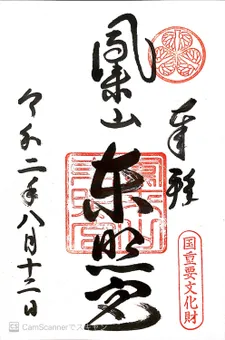 奉拝
国重要文化財
鳳来山
東照宮
令和二年八月十三日
CamScannerでスキャン